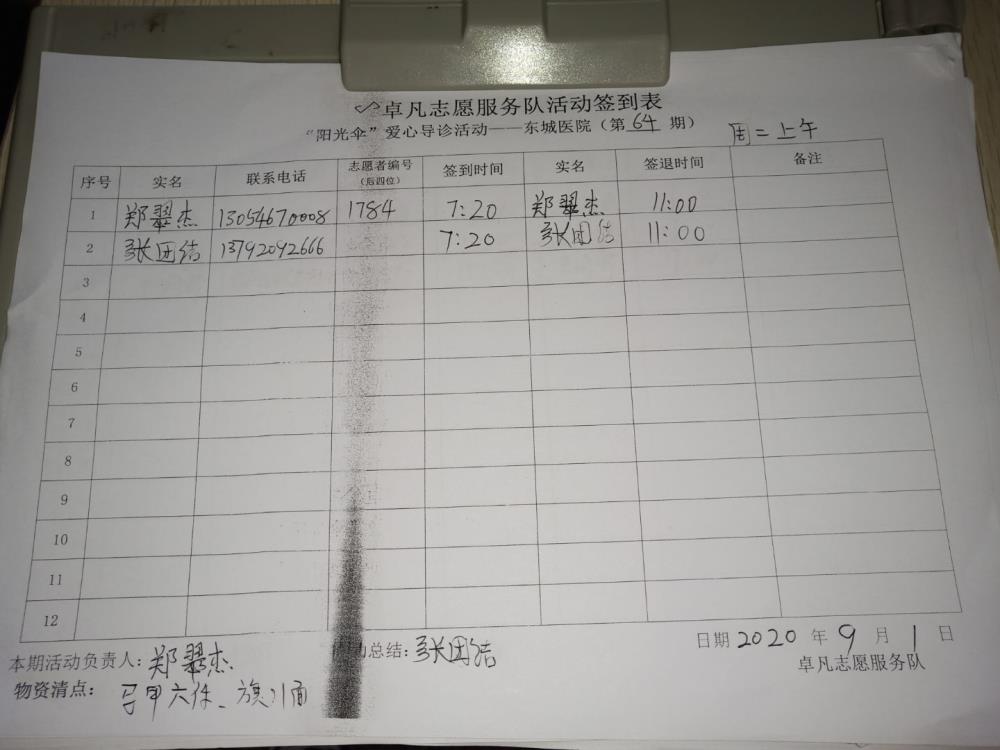 卓凡志愿服务队活动签到表
“阳光伞”爱心导诊活动——东城医院（第64期）
周二上午
序号 实名 联系电话 志愿者编号（后四位） 签到时间 实名 签退时间 备注
1 郑翠杰 13054670008 1784 7:20 郑翠杰 11:00
2 张团结 13792092666 7:20 张团结 11:00
3
4
5
6
7
8
9
10
11
12
本期活动负责人：郑翠杰 动总结：张团结 日期 2020 年 9 月 1 日
物资清点：马甲六件、旗 面 卓凡志愿服务队